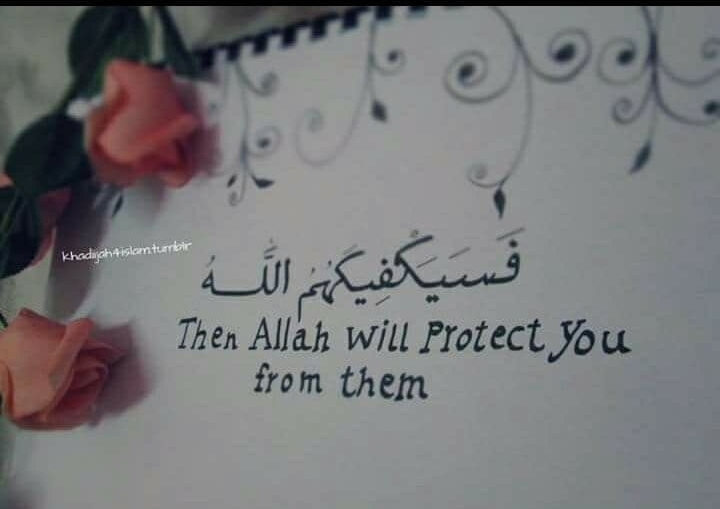 khadijah4islam.tumblr
فَسَيَكْفِيكَهُمُ اللَّـهُ
Then Allah will Protect You
from them